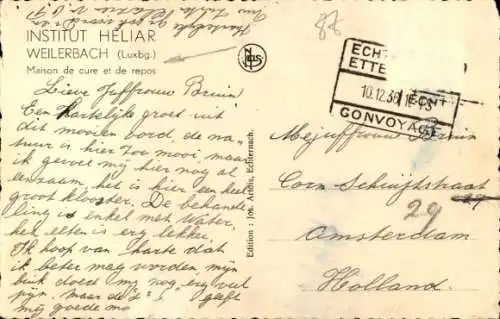 INSTITUT HELIAR
WEILERBACH (Luxbg.)
Maison de cure et de repos
Lieve Juffrouw Bruin
Een hartelijke groet uit
dit mooien oord, de na-
tuur is hier zoo mooi, maar
ik gevoel mij hier nog al
eenzaam, het is hier een heel
groot klooster. De behande
ling is enkel met Water,
het eiten is erg lekker,
Ik hoop van harte dat
ik beter mag worden, mijn
buk doed mij nog erg veel
pijn. maar de geeft
mij goede mo
Edition : Jos. Ançias, Echternach.
NELS
88
ECHT
ETTE
10.12.36
CONVOYAGE
Mejuffrouw Bruin
Corn Schuijtstraat
29
Amsterdam
Holland.